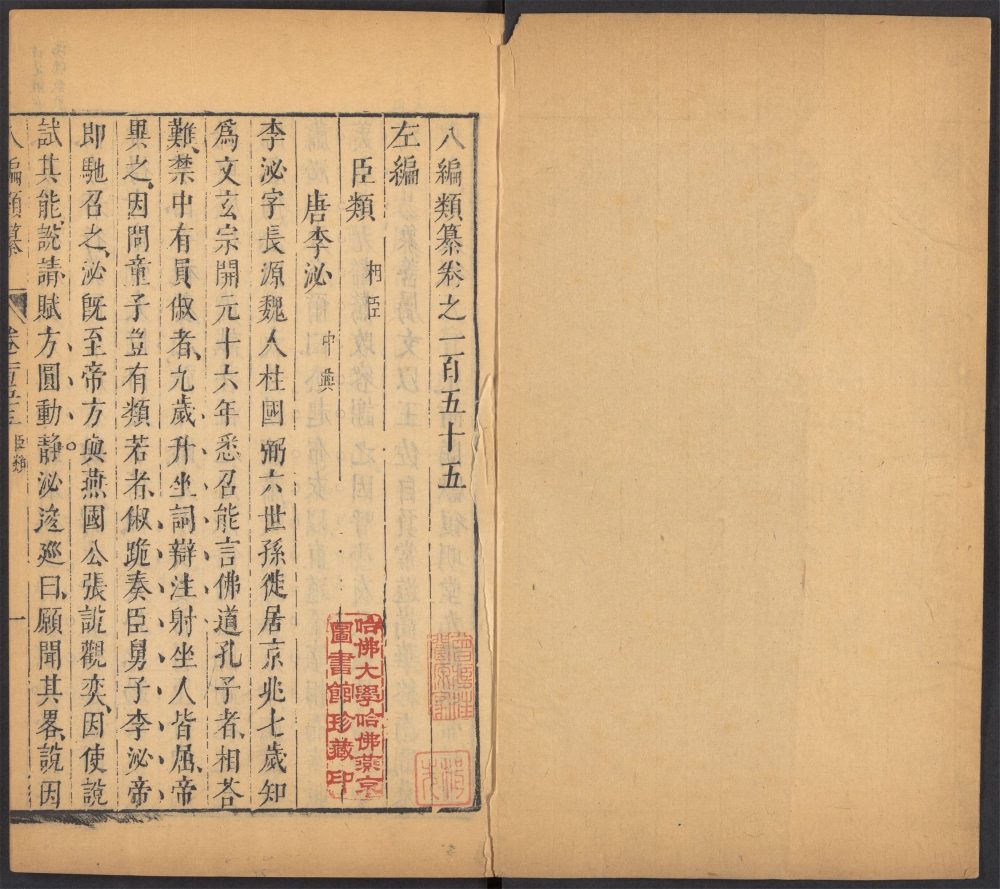 八編類纂卷之一百五十五
左編
臣類 相臣
唐李泌 中興
李泌字長源魏人柱國弼六世孫徙居京兆七歲知
爲文玄宗開元十六年悉召能言佛道孔子者相荅
難禁中有員俶者九歲升坐詞辯注射坐人皆屈帝
異之因問童子豈有類若者俶跪奏臣舅子李泌帝
即馳召之泌旣至帝方與燕國公張說觀奕因使說
試其能說請賦方圓動静泌逡巡曰願聞其畧說因
八編類纂 臣類 一
哈佛大學哈佛燕京
圖書館珍藏印